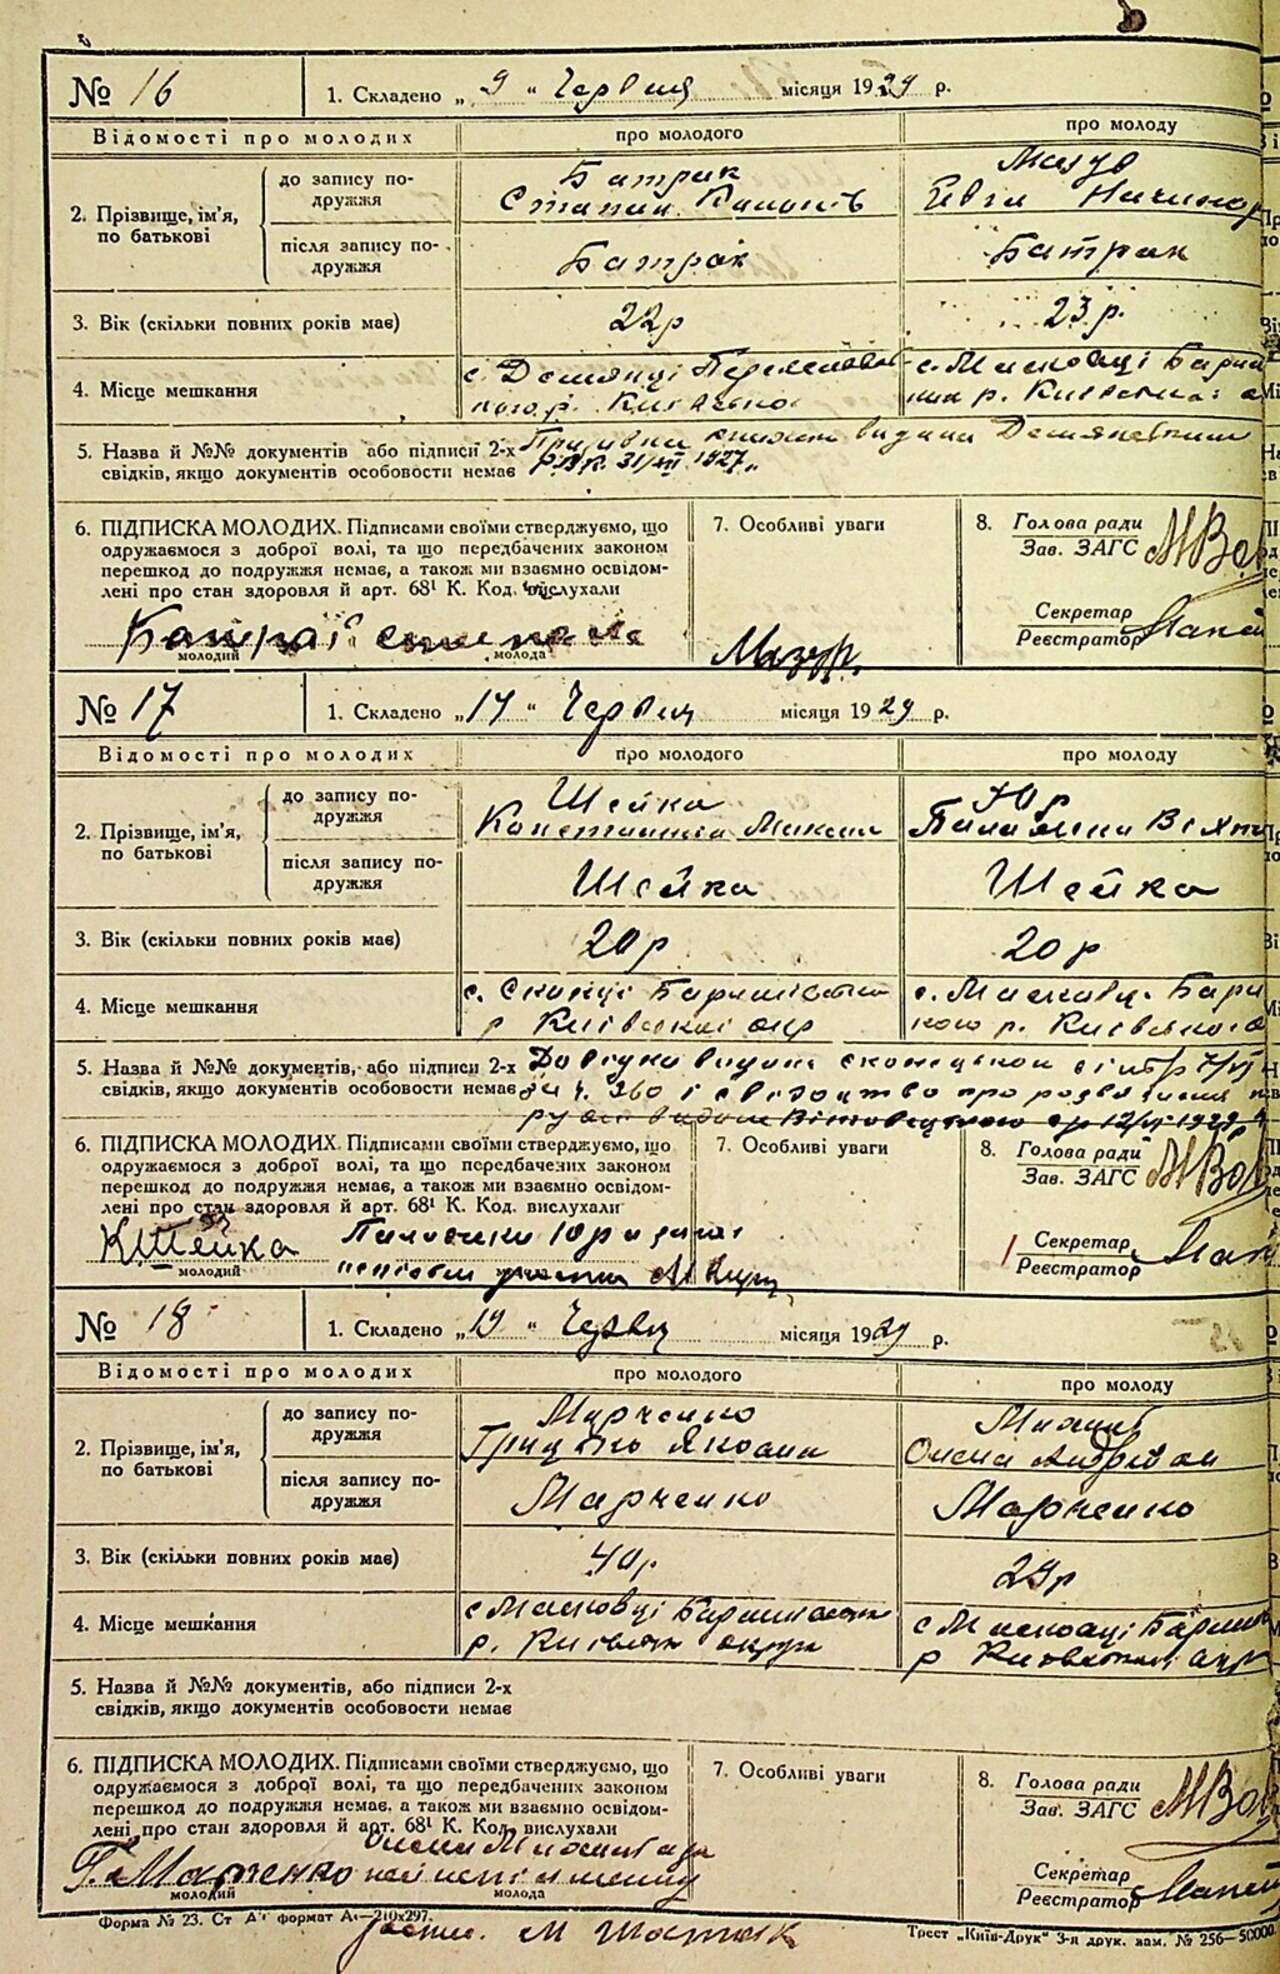 № 16
1. Складено „ 9 “ Червня місяця 1929 р.
Відомості про молодих
про молодого
про молоду
2. Прізвище, ім'я, по батькові
до запису подружжя
Батрак
Степан
Мазур
Евга Ничипор
після запису подружжя
Батрак
Батрак
3. Вік (скільки повних років має)
22р
23 р.
4. Місце мешкання
с. Демянці Переяславс-
кого р. Київсько
с. Масковці Бариш
р. Київської о
5. Назва й №№ документів або підписи 2-х
свідків, якщо документів особовости немає
книжка видана Демянецькою
31/VII 1927
6. ПІДПИСКА МОЛОДИХ. Підписами своїми стверджуємо, що
одружаємося з доброї волі, та що передбачених законом
перешкод до подружжя немає, а також ми взаємно освідом-
лені про стан здоровля й арт. 68¹ К. Код. вислухали
молодий
молода
7. Особливі уваги
Мазур
8. Голова ради
Зав. ЗАГС
Секретар
Реєстратор
№ 17
1. Складено „ 14 “ Червня місяця 1929 р.
Відомості про молодих
про молодого
про молоду
2. Прізвище, ім'я, по батькові
до запису подружжя
Шейко
Константин Максим
Юр
Палажка
після запису подружжя
Шейко
Шейко
3. Вік (скільки повних років має)
20р
20 р
4. Місце мешкання
с. Скопці Баришівськ
р Київської окр
с. Масковці Бари
кого р. Київської о
5. Назва й №№ документів, або підписи 2-х
свідків, якщо документів особовости немає
Довідка видана Скопецькою с/р 7/VI
за ч. 360 і свідоцтво про
видане 12/VI 1929 р
6. ПІДПИСКА МОЛОДИХ. Підписами своїми стверджуємо, що
одружаємося з доброї волі, та що передбачених законом
перешкод до подружжя немає, а також ми взаємно освідом-
лені про стан здоровля й арт. 68¹ К. Код. вислухали
К Шейко
молодий
Палажки Юр а за неї
неписьменну
7. Особливі уваги
8. Голова ради
Зав. ЗАГС
Секретар
Реєстратор
№ 18
1. Складено „ 19 “ Червня місяця 1929 р.
Відомості про молодих
про молодого
про молоду
2. Прізвище, ім'я, по батькові
до запису подружжя
Марченко
Грицько Якович
Олена Андрієвна
після запису подружжя
Марченко
Марченко
3. Вік (скільки повних років має)
40р
29р
4. Місце мешкання
с Масковці Баришівськ
р. Київськ округи
с Масковці Бариш
р Київської окр
5. Назва й №№ документів, або підписи 2-х
свідків, якщо документів особовости немає
6. ПІДПИСКА МОЛОДИХ. Підписами своїми стверджуємо, що
одружаємося з доброї волі, та що передбачених законом
перешкод до подружжя немає, а також ми взаємно освідом-
лені про стан здоровля й арт. 68¹ К. Код. вислухали
Г. Марченко
молодий
молода
7. Особливі уваги
8. Голова ради
Зав. ЗАГС
Секретар
Реєстратор
Форма № 23. Ст А⁴ формат А₄—210x297.
Трест „Київ-Друк“ 3-я друк. зам. № 256—50000